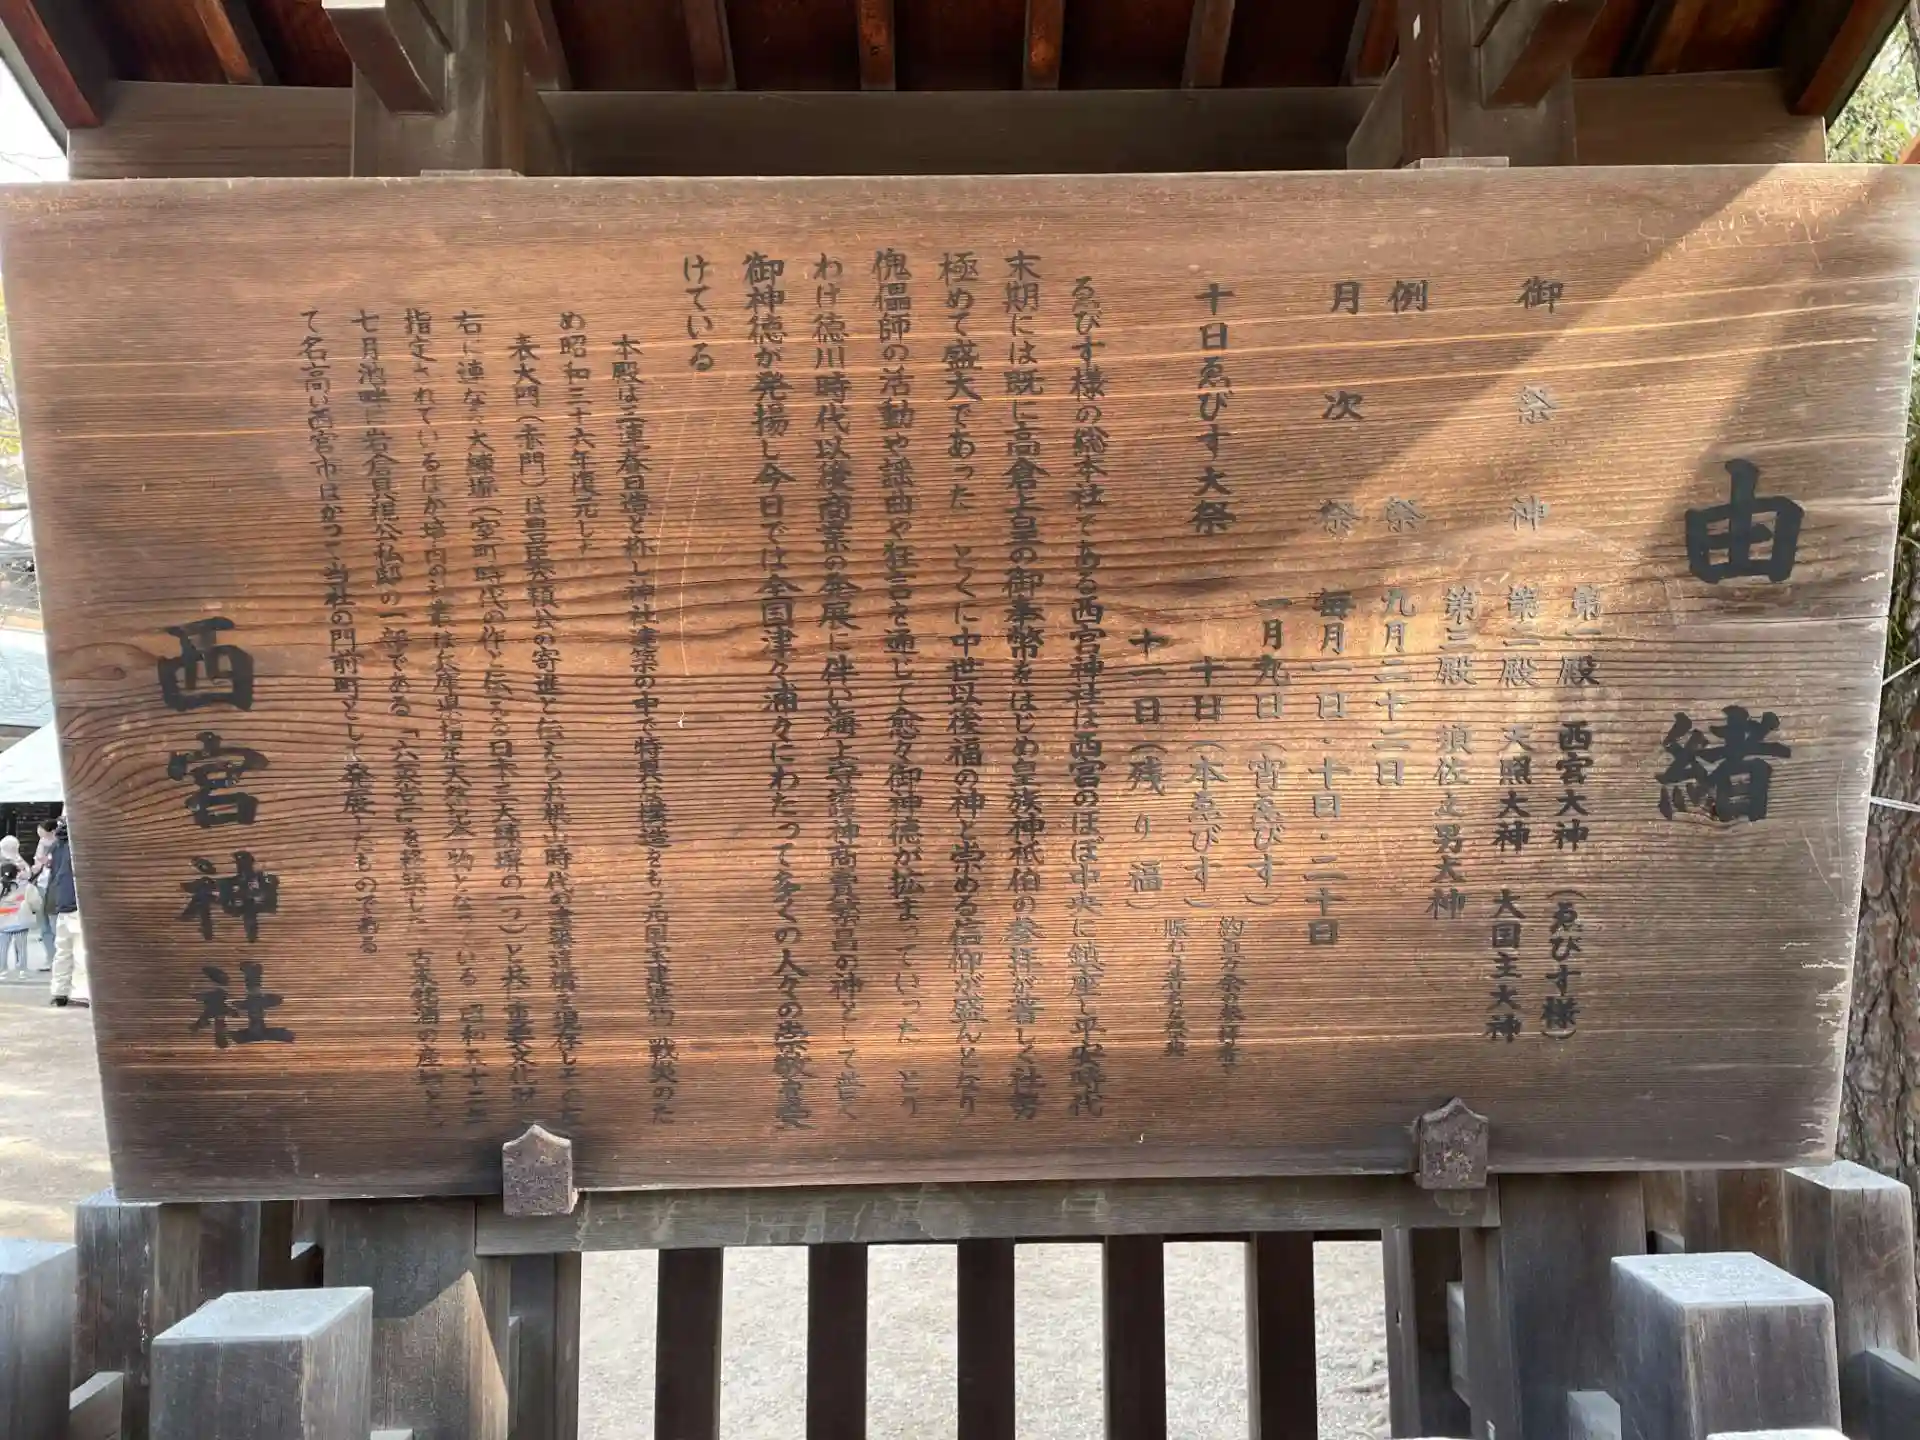 由緒
御祭神 第一殿 西宮大神(ゑびす様)
第二殿 天照大神 大国主大神
第三殿 須佐之男大神
例祭 九月二十二日
月次祭 毎月一日・十日・二十日
十日ゑびす大祭 一月九日(宵ゑびす)
十日(本ゑびす)
十一日(残り福)
約百万余の参拝者で
賑わう著名な祭典
ゑびす様の総本社である西宮神社は西宮のほぼ中央に鎮座し平安時代
末期には既に高倉上皇の御奉幣をはじめ皇族神祇伯の参拝が著しく社勢
極めて盛大であった とくに中世以後福の神と崇める信仰が盛んとなり
傀儡師の活動や謡曲や狂言を通じて愈々御神徳が拡まっていった とり
わけ徳川時代以後商業の発展に伴い海上守護神商売繁昌の神として普く
御神徳が発揚し今日では全国津々浦々にわたって多くの人々の崇敬を受
けている
本殿は三連春日造と称し神社建築の中で特異な構造をもつ元国宝建造物 戦災のた
め昭和三十六年復元した
表大門(赤門)は豊臣秀頼公の寄進と伝えられ桃山時代の建築遺構を現存しこの左
右に連なる大練塀(室町時代の作と伝える日本三大練塀の一つ)と共に重要文化財に
指定されているほか境内の社叢は兵庫県指定天然記念物となっている 昭和五十二年
七月池畔に岩倉具視公私邸の一部である「六英堂」を移築した 古来銘酒の産地とし
て名高い西宮市はかつて当社の門前町として発展したものである
西宮神社